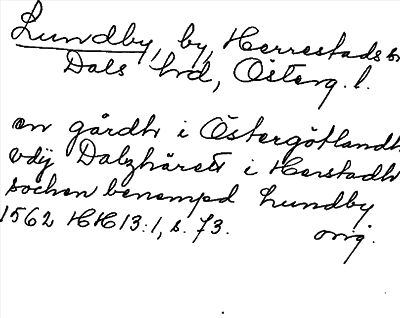 Lundby, by, Herrestads sn
Dals hd, Österg. l.
en gårdh i Östergötlandh
vdij Dalzhärett i Herstadh
sochen benempd Lundby
1562 HH 13:1, s. 73. orig.